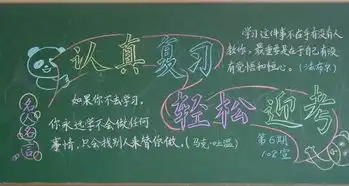 认真复习
轻松迎考
学习这件事不在乎有没有人
教你，最重要是在于自己有没
有觉悟和恒心。（法布尔）
名人名言
如果你不去学习，
你永远学不会做任何
事情，只会找别人来替你做。（马克·吐温）
第6期
108室